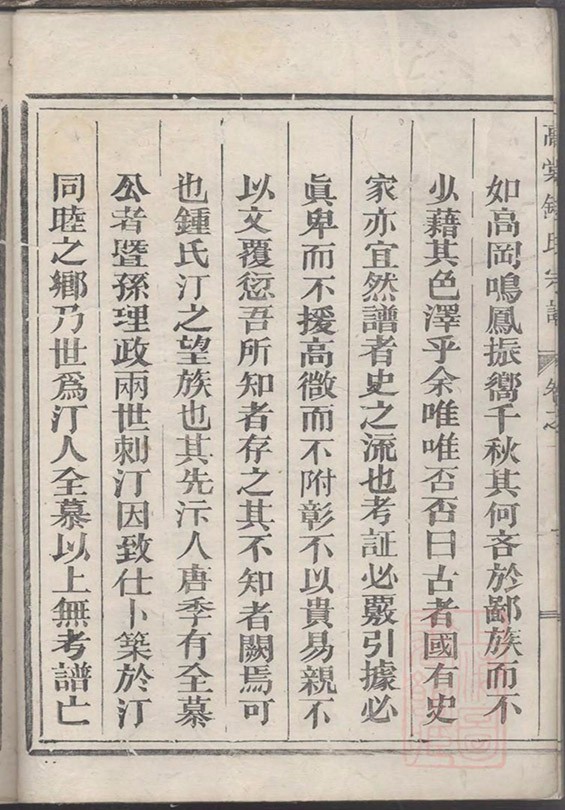 如高岡鳴鳳振嚮千秋其何吝於鄙族而不
少藉其色澤乎余唯唯否否曰古者國有史
家亦宜然譜者史之流也考証必覈引據必
眞卑而不援高微而不附彰不以貴易親不
以文覆愆吾所知者存之其不知者闕焉可
也鍾氏汀之望族也其先汴人唐季有全慕
公者暨孫理政兩世刺汀因致仕卜築於汀
同睦之鄉乃世爲汀人全慕以上無考譜亡